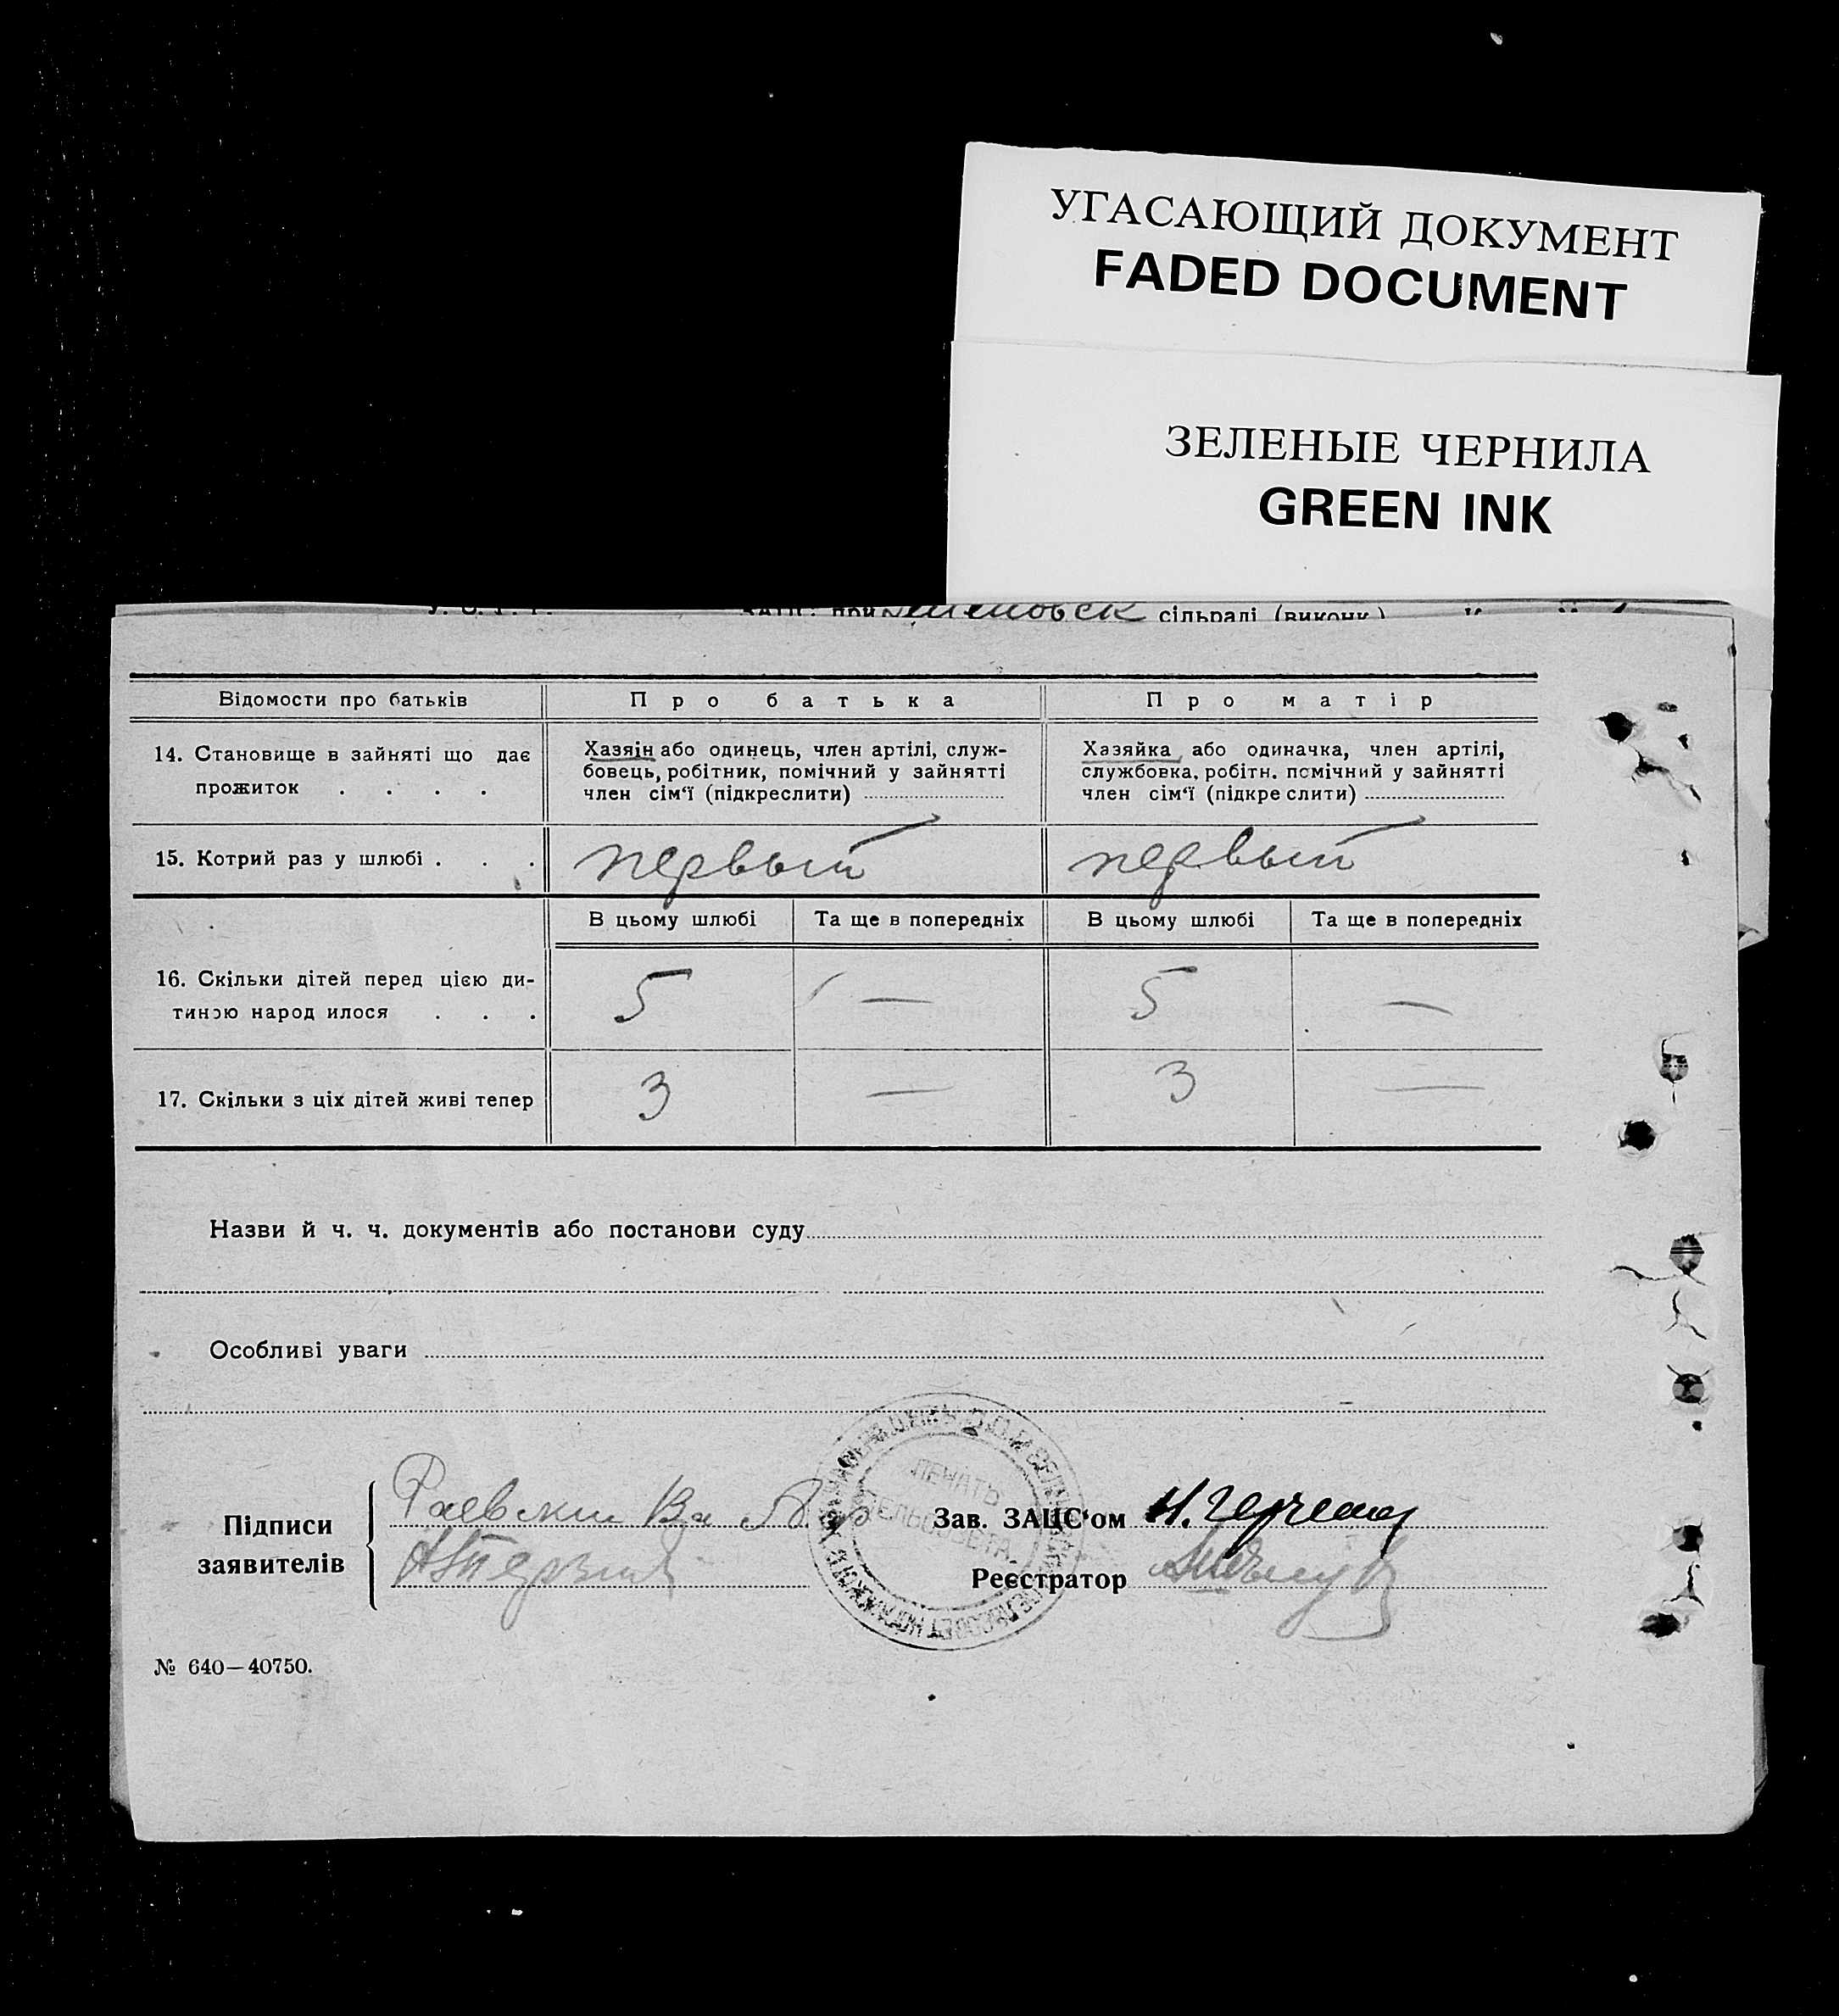 УГАСАЮЩИЙ ДОКУМЕНТ
FADED DOCUMENT
ЗЕЛЕНЫЕ ЧЕРНИЛА
GREEN INK
сільраді (виконк.)
Відомости про батьків
Про батька
Про матір
14. Становище в зайняті що дає
прожиток . . . .
Хазяїн або одинець, член артілі, служ-
бовець, робітник, помічний у зайнятті
член сім‘ї (підкреслити)
Хазяйка або одиначка, член артілі,
службовка, робітн. помічний у зайнятті
член сім‘ї (підкреслити)
15. Котрий раз у шлюбі . . .
первый
первый
В цьому шлюбі
Та ще в попередніх
В цьому шлюбі
Та ще в попередніх
16. Скільки дітей перед цією ди-
тиною народилося . . .
5
—
5
—
17. Скільки з ціх дітей живі тепер
3
—
3
—
Назви й ч. ч. документів або постанови суду
Особливі уваги
ПЕЧАТЬ
Підписи
заявителів
Зав. ЗАЦС‘ом
Реєстратор
№ 640—40750.